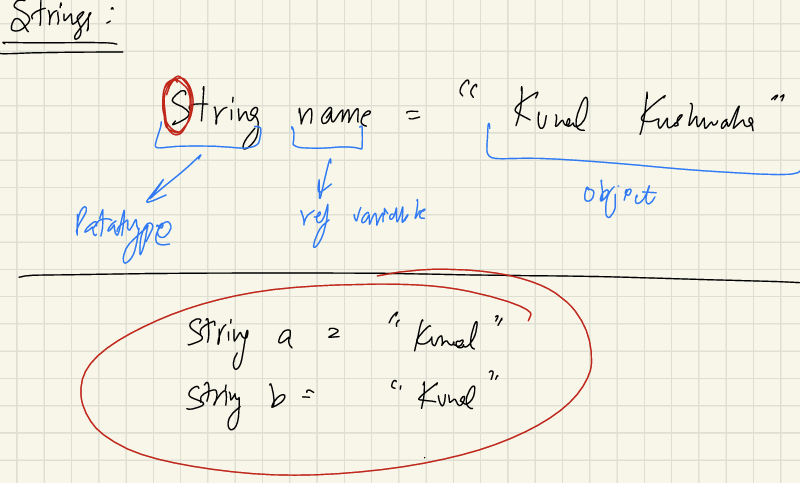 Strings:
String name = " Kunal Kushwaha "
Datatype ref variable object
String a = " Kunal "
String b = " Kunal "